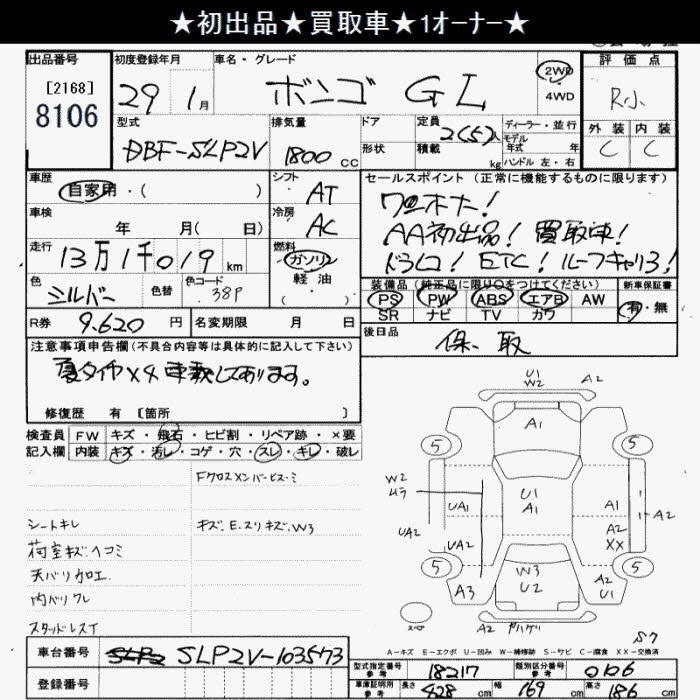 ★初出品★買取車★1オーナー★
出品番号 [2168] 8106
初度登録年月 29年 1月
車名・グレード ボンゴ GL
2WD
4WD
評価点
R小
外装 内装
C C
型式 DBF-SLP2V
排気量 1800 CC
ドア
形状
定員 2(5)人
積載 kg
ディーラー・並行
モデル年式 年
ハンドル 左・右
車歴 自家用・( )
シフト AT
セールスポイント (正常に機能するものに限ります)
ワンオーナー!
AA初出品! 買取車!
ドラレコ! ETC! ルーフキャリア!
車検 年 月( 日)
冷房 AC
走行 13万1千019km
燃料 ガソリン
軽油
( )
色 シルバー 色替 色コード 38P
装備品(純正品に限り○をつけてください)
PS PW ABS エアB AW
SR ナビ TV カワ
新車保証書
有・無
R券 9.620 円
名変期限 月 日
後日品 保、取
注意事項申告欄(不具合内容等は具体的に記入して下さい)
夏タイヤ×4 車載しております。
修復歴 有 [箇所 ]
検査員記入欄
FW キズ・飛石・ヒビ割・リペア跡・×要
内装 キズ・汚レ・コゲ・穴・スレ・キレ・破レ
Fクロスメンバービス・ミ
シートキレ
キズ、E、スリキズ、W3
荷室キズ、ヘコミ
天バリカロエ
内バリワレ
スタッドレス
U1
W2
A2
A1
5 5
W2
ムラ
U1
A1
UA1
A1
A2
UA2
UA2
A2
XX
5 5
W3
U2
A3
A2
U1
A2
S7
A-キズ E-エクボ U-凹み W-補修跡 S-サビ C-腐食 XX-交換済
車台番号 SLP2V-103573
登録番号
型式指定番号 参考 18217
類別区分番号 参考 0106
車庫証明用 参考 長さ 428 cm 幅 169 cm 高さ 186 cm